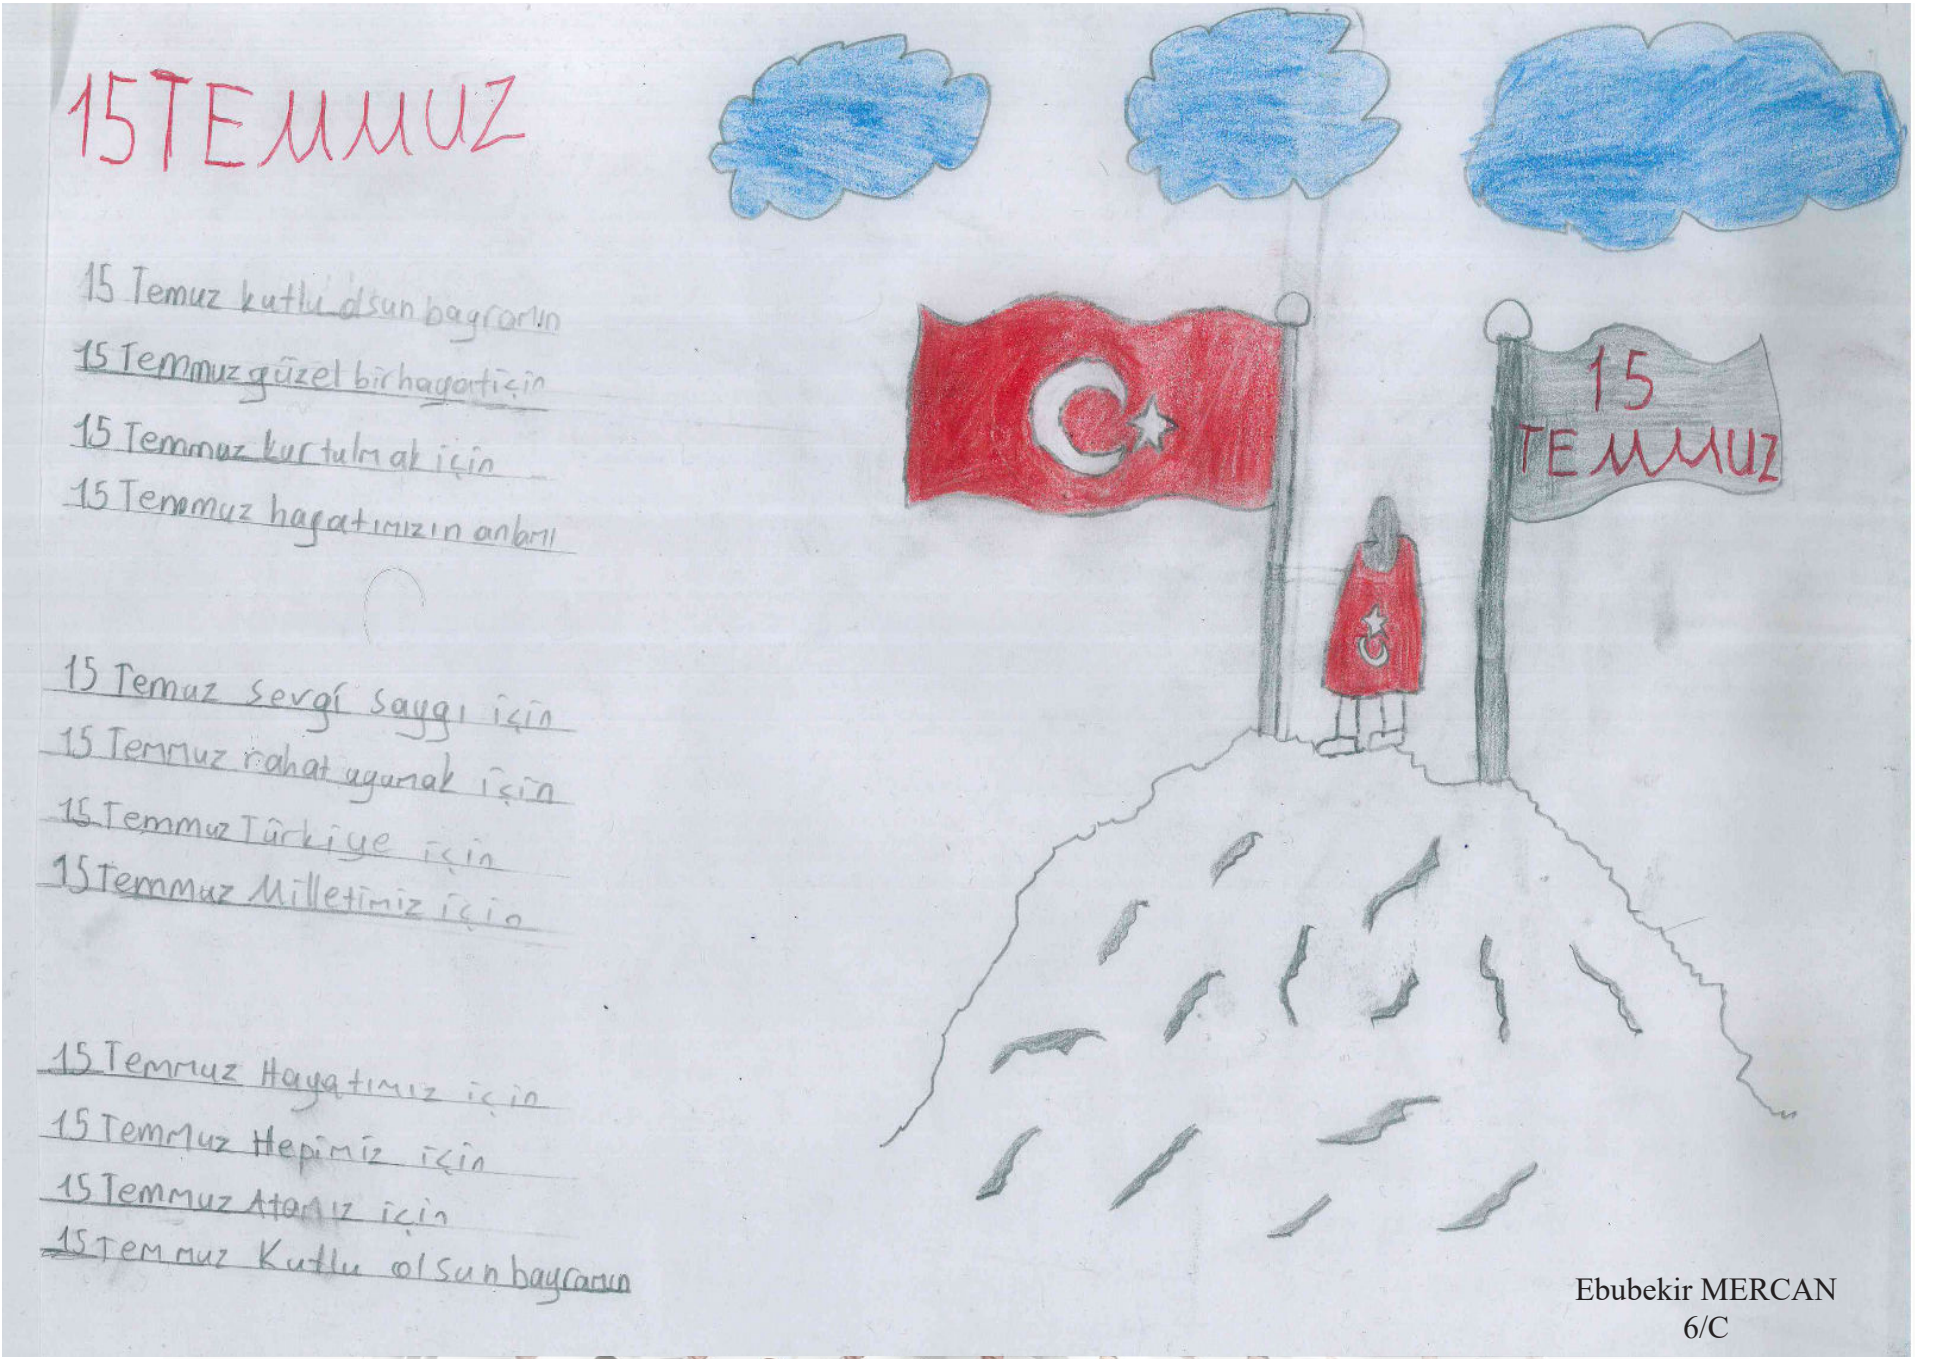 15 TEMMUZ
15 Temuz kutlu olsun bayramın
15 Temmuz güzel bir hayat için
15 Temmuz kurtulmak için
15 Temmuz hayatımızın anlamı
15 Temuz sevgi saygı için
15 Temmuz rahat uyumak için
15 Temmuz Türkiye için
15 Temmuz Milletimiz için
15 Temmuz Hayatımız için
15 Temmuz Hepimiz için
15 Temmuz Atamız için
15 Temmuz Kutlu olsun bayramın
15
TEMMUZ
Ebubekir MERCAN
6/C